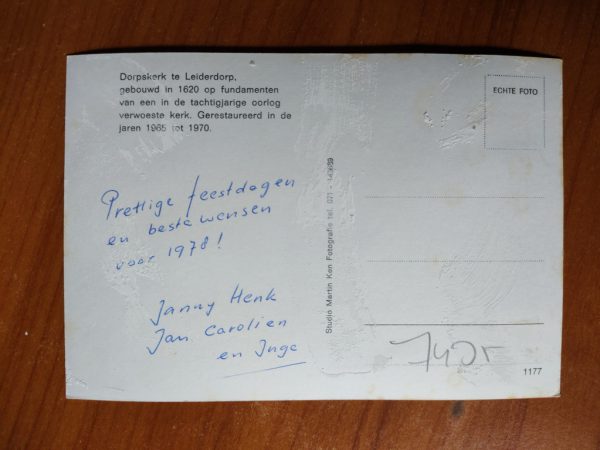 Dorpskerk te Leiderdorp,
gebouwd in 1620 op fundamenten
van een in de tachtigjarige oorlog
verwoeste kerk. Gerestaureerd in de
jaren 1965 tot 1970.
ECHTE FOTO
Prettige feestdagen
en beste wensen
voor 1978!
Janny Henk
Jan Carolien
en Inge
Studio Martin Kon Fotografie tel. 071 -
1177